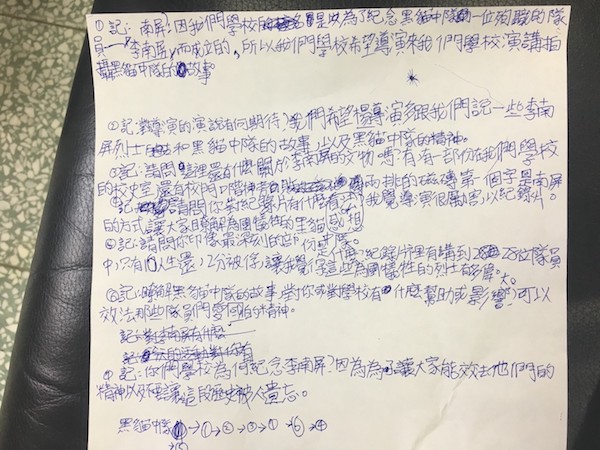 ①記:南屏:因我們學校的是以為了紀念黑貓中隊的一位殉職的隊
員—李南屏,而成立的,所以我們學校希望導演來我們學校演講拍
攝黑貓中隊的故事。
②記:對導演的演說有何期待?我們希望楊導演多跟我們說一些李南
屏烈士和黑貓中隊的故事,以及黑貓中隊的精神。
③記:請問這裡還有什麼關於李南屏的文物嗎?有,有一部份在我們學校
的校史室,還有校門口階兩排的磁磚第一個字是南屏
記:請問你對紀錄片有什麼看法?我覺導演很厲害,以紀錄片
的方式讓大家瞭解為國犧牲的黑貓感想
記:請問你印像最深刻的部份是?紀錄片裡有講到28位隊員
中,只有 人生還,2分被俘,讓我覺得這些為國犧牲的烈士有多偉大。
⑥記:瞭解黑貓中隊的故事,對你或對學校有什麼幫助或影響?可以
效法那些隊員們愛國的精神。
記:對李南屏有什麼
記:今天的活動對你有
記:你們學校為何紀念李南屏?因為為了讓大家能效法他們的
精神以及不要讓這段歷史被人遺忘。
黑貓中隊 →①→②→③→①→⑥→④